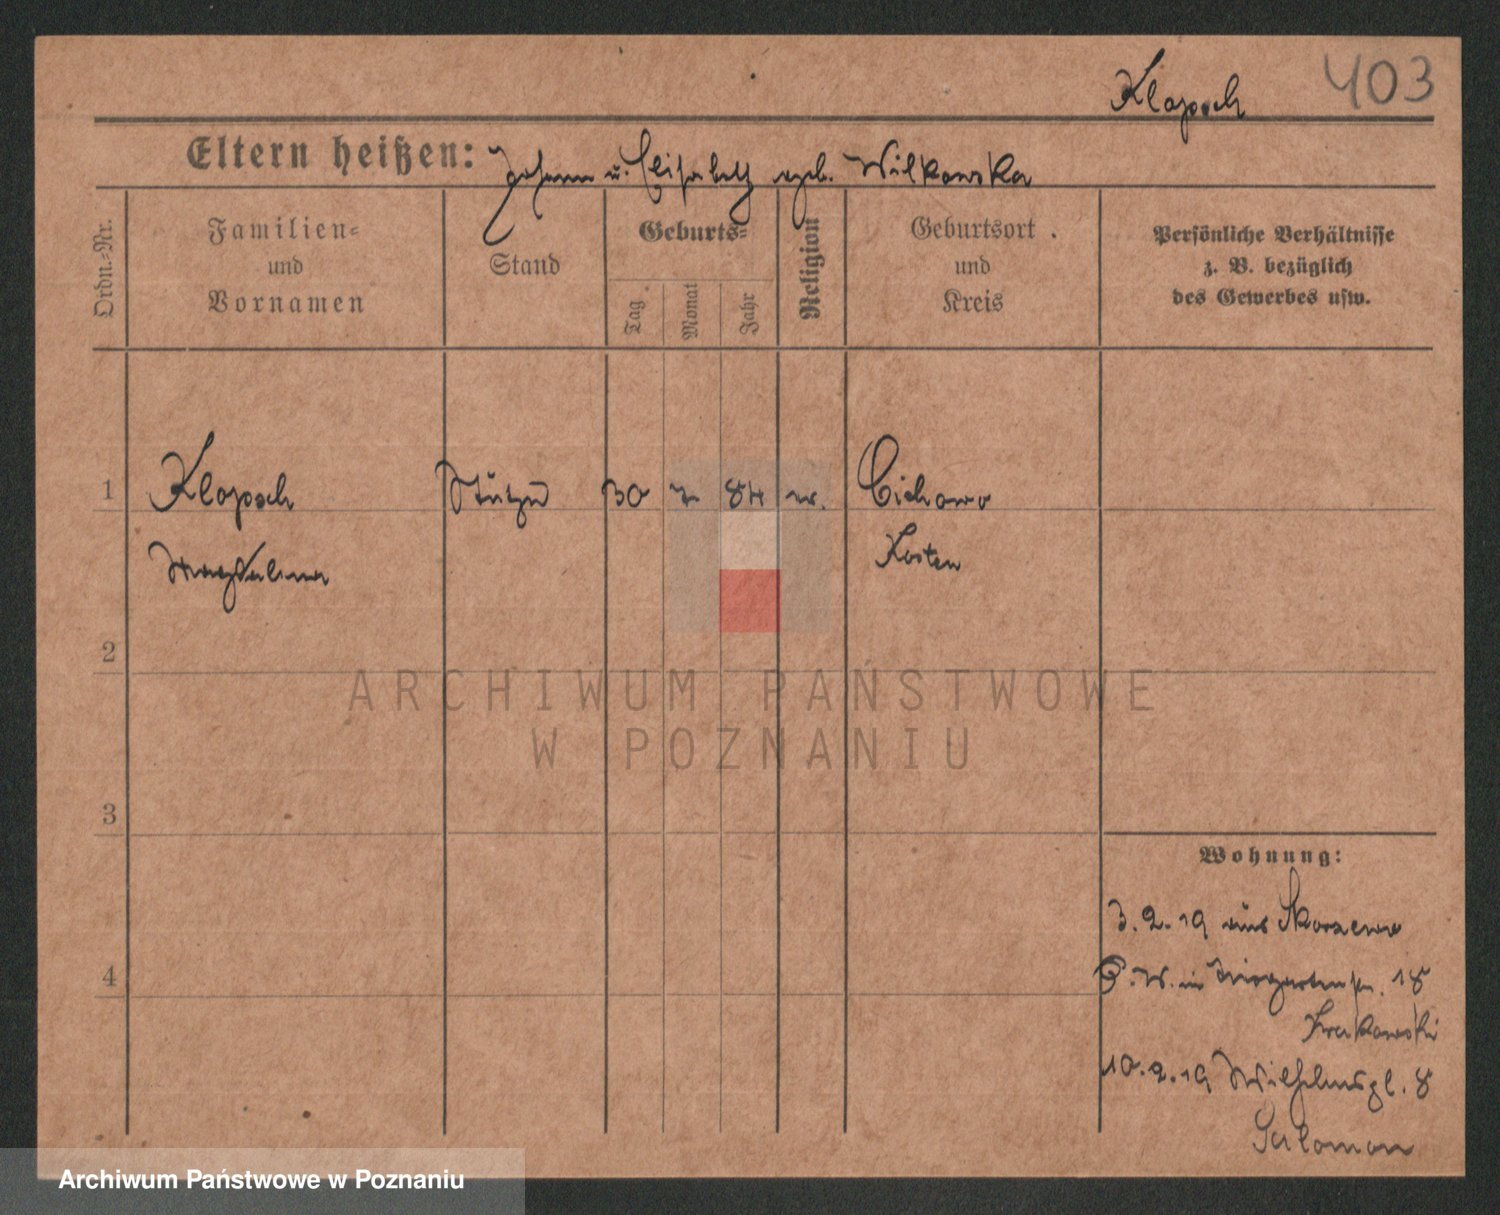 Klopsch 403
Eltern heißen: Johann u. Elisabeth geb. Wilkowska
Ordn.-Nr.
Familien-
und
Vornamen
Stand
Geburts-
Tag
Monat
Jahr
Religion
Geburtsort
und
Kreis
Persönliche Verhältnisse
z. B. bezüglich
des Gewerbes usw.
1 Klopsch Stütze 30 7 84 Cichowo
Magdalena Kosten
2
ARCHIWUM PAŃSTWOWE
W POZNANIU
3
Wohnung:
3.2.19 aus Skorzewo
W. in Tiergartenstr. 18
Krakowski
4
10.2.19 Wilhelmspl. 8
Salomon
Archiwum Państwowe w Poznaniu